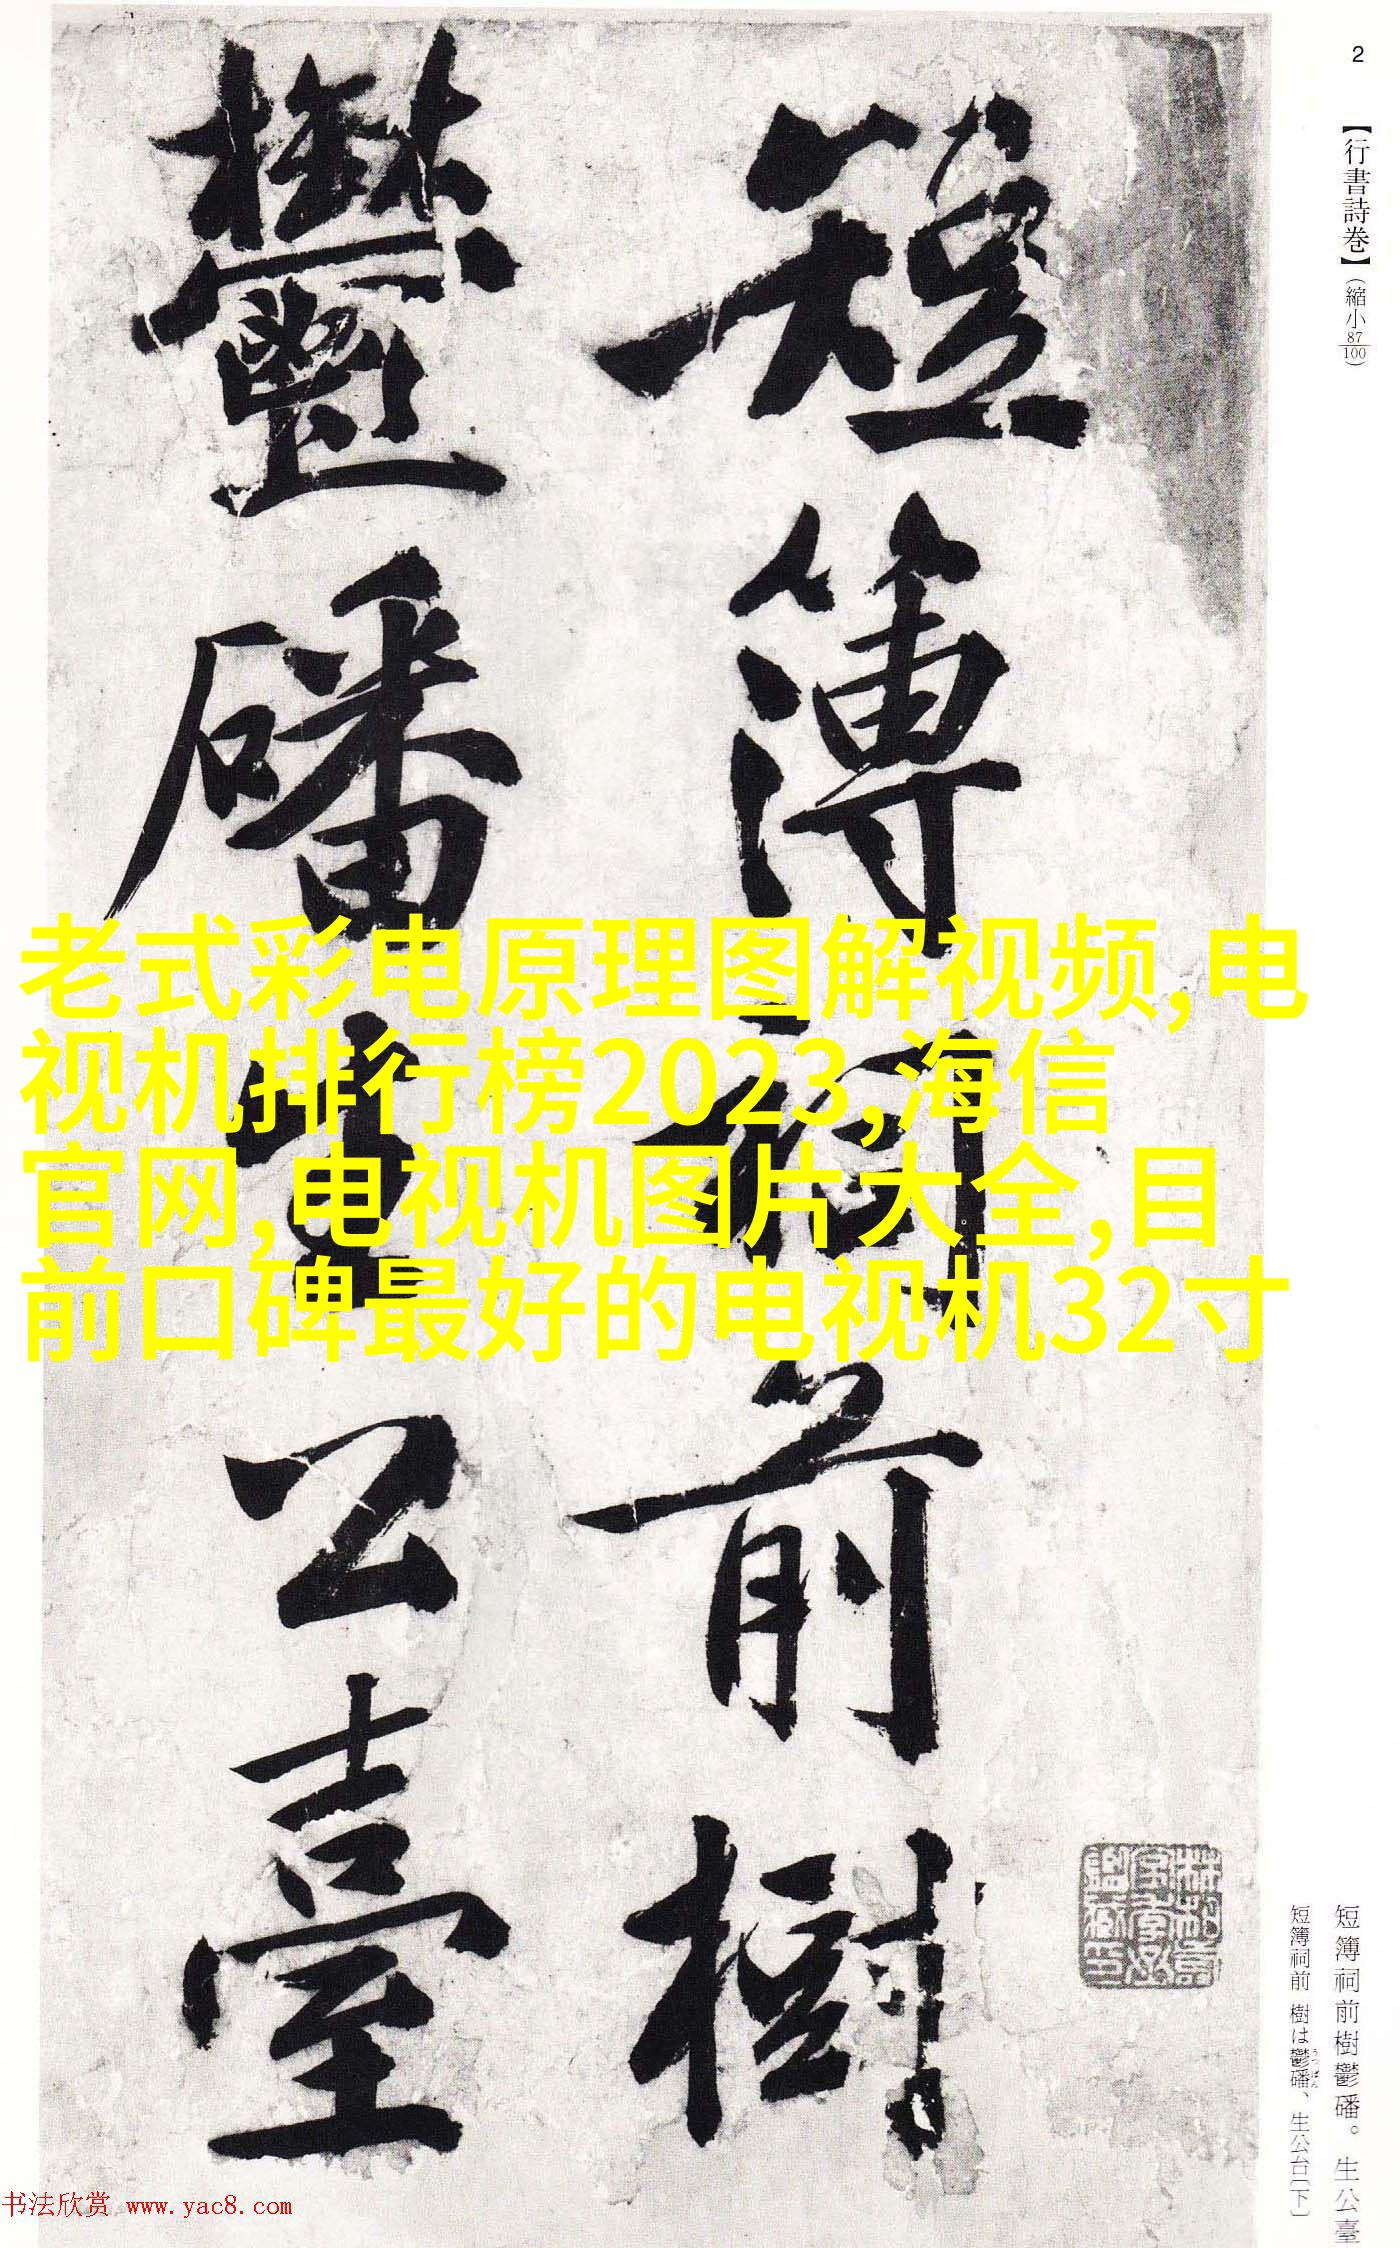 2
【行書詩巻】(縮小87/100)
短簿祠前樹
鬱磻生公臺
老式彩电原理图解视频,电
视机排行榜2023,海信
官网,电视机图片大全,目
前口碑最好的电视机32寸
短簿祠前樹鬱磻。生公臺
短簿祠前 樹は鬱磻、生公台〔下〕
书法欣赏 www.yac8.com